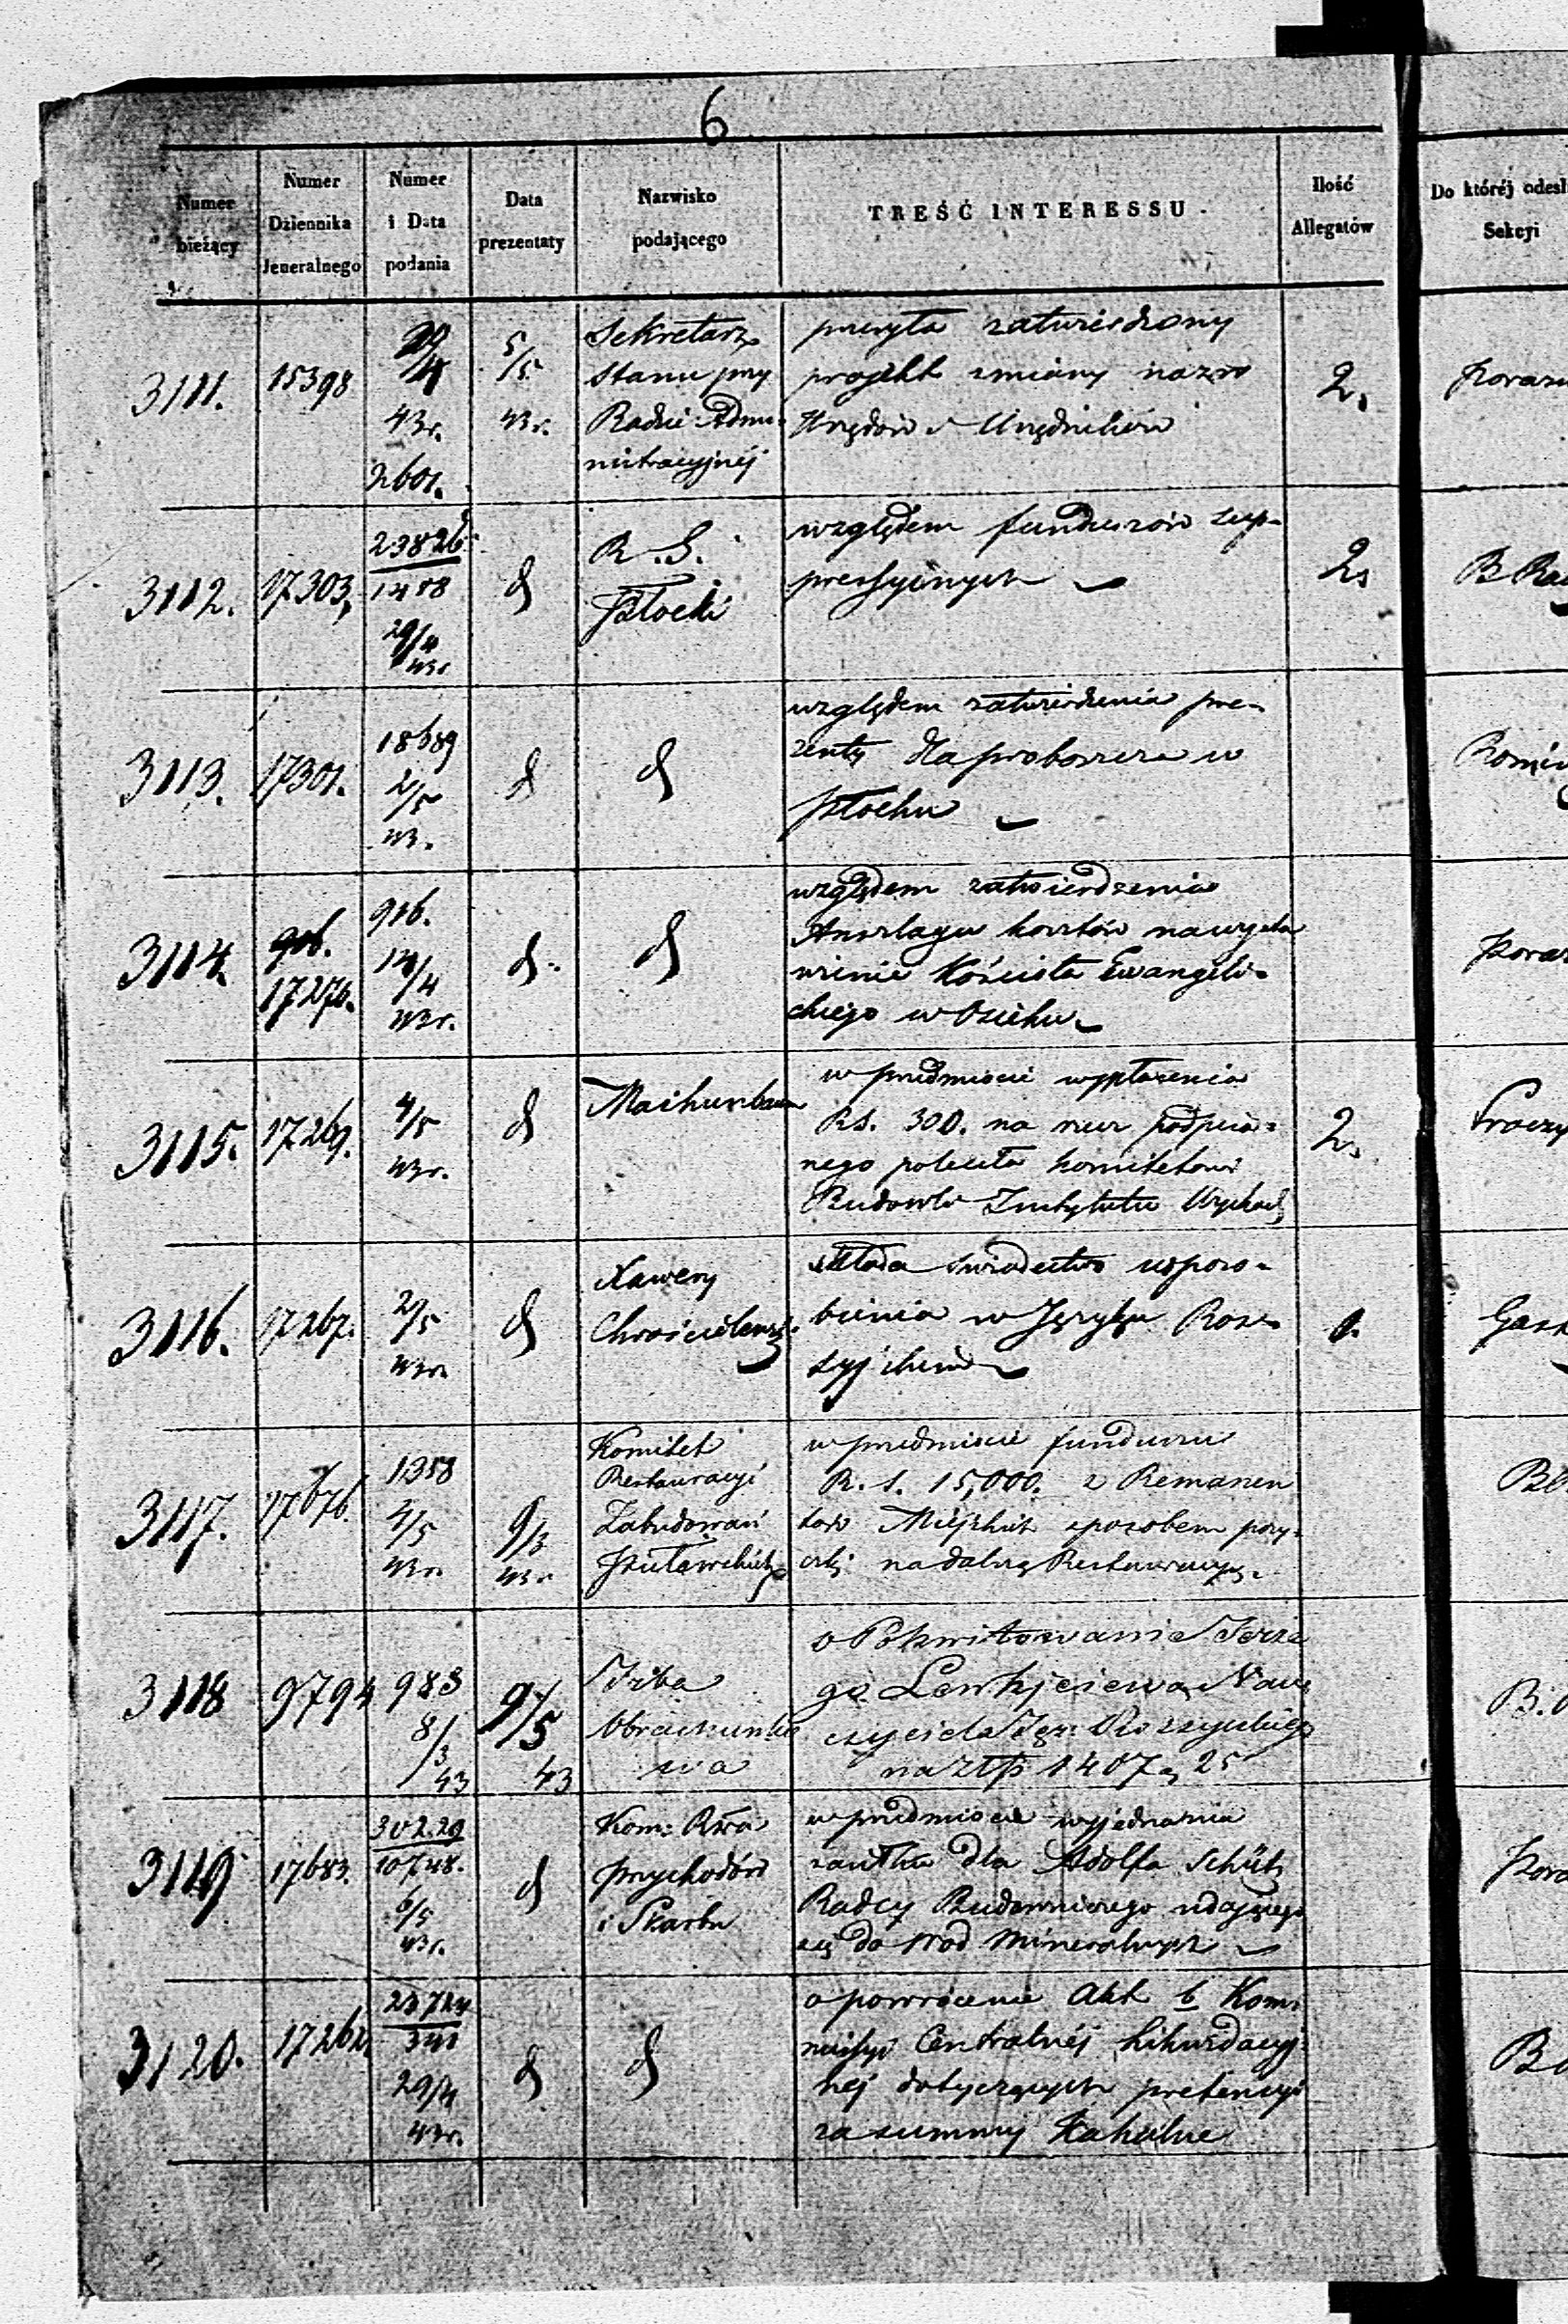 6
Numer bieżący
Numer Dziennika Jeneralnego
Numer i Data podania
Data prezentaty
Nazwisko podającego
TREŚĆ INTERESSU.
Ilość Allegatów
Do któréj odesł
Sekcji
3111.
15398
29/4
43 r.
2601.
5/5
43 r.
Sekretarz
Stanu przy
Radzie Admi-
nistracyjnéj
przesyła zatwierdzony
projekt zmiany nazw
Urzędów i Urzędników
2.
3112.
17303,
23826
1488
29/4
43 r
d
R. G.
Płocki
względem funduszów sup-
pressyjnych
2
3113.
17301.
18689
2/5
43.
d
d
względem zatwierdzenia pre-
zenty dla proboszcza w
Płocku
3114.
906.
17276.
916.
14/4
43 r.
d.
d
względem zatwierdzenia
Anszlagu kosztów na wysta
wienie Kościoła Ewangeli-
ckiego w Osieku
3115.
17269.
4/5
43 r.
d
w przedmiocie wypłacenia
RS. 300. na rzecz podpisa-
nego poleciła komitetowi
Budowli Instytutu
2
3116.
17267.
2/5
43 r.
d
Xawery
składa świadectwo usposo-
bienia w Języku Ros-
syjskim
1.
3117.
17676.
1358
4/5
43 r.
9/5
43 r.
Komitet
Restauracyi
Zabudowań
Puławskich
w przedmiocie funduszu
R. S. 15,000. z Remanen
tów Miejskich sposobem poży-
czki na dalszą Restauracyą.
3118
9794
983
8/3
43
9/5
43
Izba
Obrachunko
wa
o Pokwitowanie Jerze
go Nau
czyciela Jęz: Rossyjskiego
na złp 1407 g 25
3119
17683.
30229
10748.
6/5
43 r.
d
Kom: Rwa
Przychodów
i Skarbu
w przedmiocie wyjednania
zasiłku dla Adolfa Schütz
Radcy Budowniczego udającego
się do wód Mineralnych
3120.
29/4
43 r.
d
d
o powrócenie Akt b Kom-
missyi Centralnéj Likwidacyj-
néj dotyczących pretensyi
za summy Kahalne